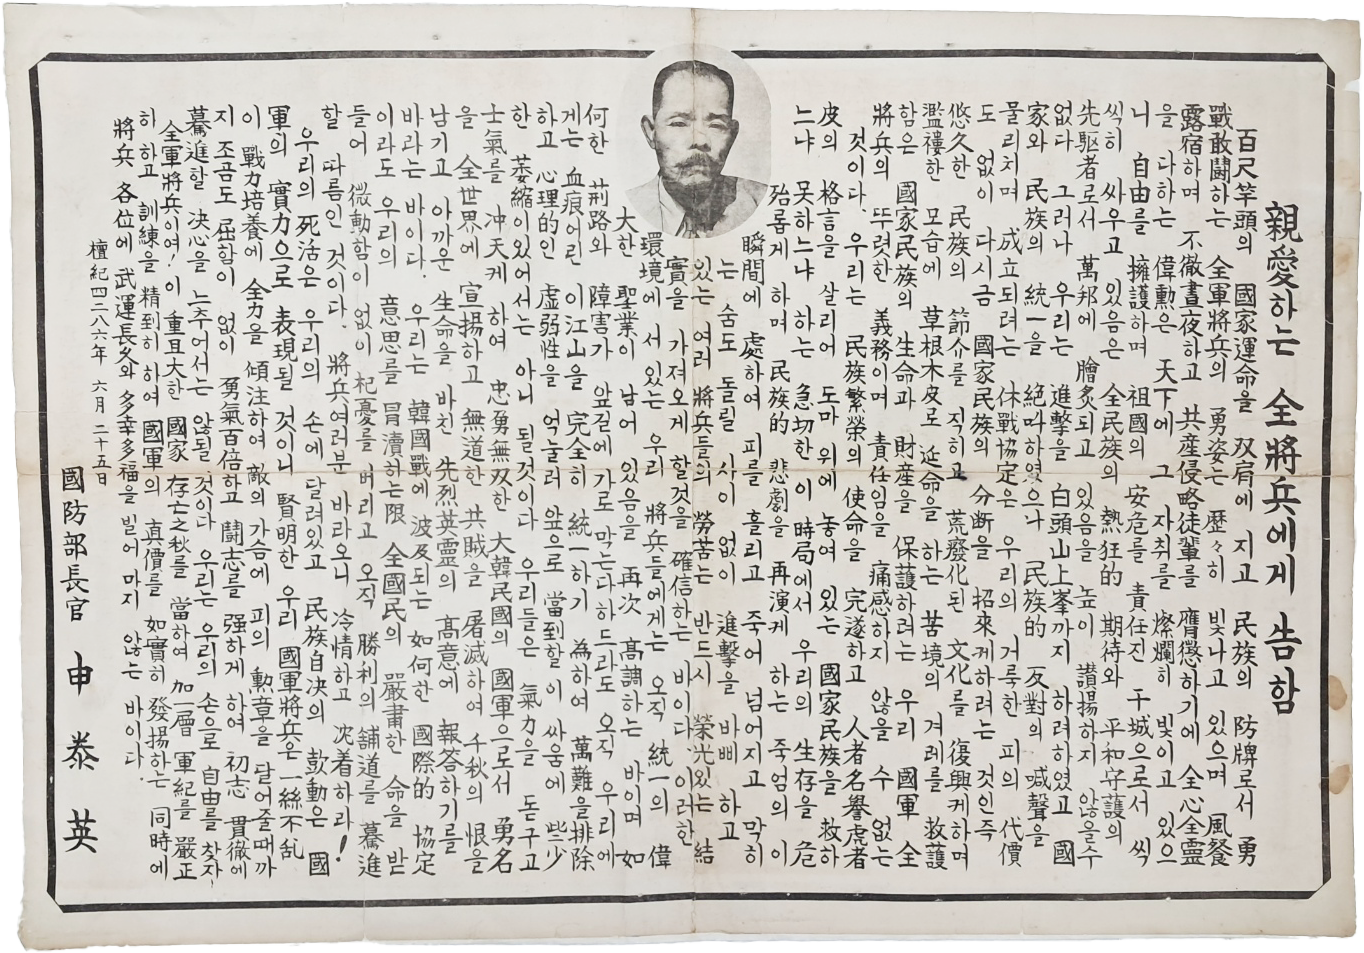 親愛하는 全將兵에게 告함
百尺竿頭의 國家運命을 双肩에 지고 民族의 防牌로서 勇
戰敢鬪하는 全軍將兵의 勇姿는 歷々히 빛나고 있으며 風餐
露宿하며 不徹晝夜하고 共産侵略徒輩를 膺懲하기에 全心全靈
을 다하는 偉勳은 天下에 그 자취를 燦爛히 빛이고 있으
니 自由를 擁護하며 祖國의 安危를 責任진 干城으로서 씩
씩히 싸우고 있음은 全民族의 熱狂的 期待와 平和守護의
先駆者로서 萬邦에 膾炙되고 있음을 높이 讃揚하지 않을수
없다 그러나 우리는 進擊을 白頭山上峯까지 하려하였고 國
家와 民族의 統一을 絶따하였으나 民族的 反對의 喊聲을
물리치며 成立되려는 休戰協定은 우리의 거룩한 피의 代價
도 없이 다시금 國家民族의 分断을 招來케하려는 것인즉
悠久한 民族의 節介를 직히고 荒廢化된 文化를 復興케하며
濫褸한 모습에 草根木皮로 延命을 하는 苦境의 겨레를 救護
함은 國家民族의 生命과 財産을 保護하려는 우리 國軍 全
將兵의 뚜렷한 義務이며 責任임을 痛感하지 않을 수 없는
것이다. 우리는 民族繁榮의 使命을 完遂하고 人者名譽虎者
皮의 格言을 살리어 도마 위에 놓여 있는 國家民族을 救하
느냐 못하느냐 하는 急切한 이 時局에서 우리의 生存을 危
殆롭게 하며 民族的 悲劇을 再演케 하는 죽엄의 이
瞬間에 處하여 피를 흘리고 죽어 넘어지고 막히
는 숨도 돌릴 사이 없이 進擊을 바삐 하고
있는 여러 將兵들의 勞苦는 반드시 榮光있는 結
實을 가져오게 할것을 確信하는 바이다. 이러한
環境에 서 있는 우리 將兵들에게는 오직 統一의 偉
大한 聖業이 남어 있음을 再次 高調하는 바이며 如
何한 荊路와 障害가 앞길에 가로 막는다하드라도 오직 우리에
게는 血痕어린 이江山을 完全히 統一하기 爲하여 萬難을排除
하고 心理的인 虛弱性을 억눌러 앞으로 當到할 이 싸움에 些少
한 萎縮이있어서는 아니 될것이다 우리들은 氣力을 돋구고
士氣를 冲天케 하여 忠勇無双한 大韓民國의 國軍으로서 勇名
을 全世界에 宣揚하고 無道한 共賊을 屠滅하여 千秋의 恨을
남기고 아까운 生命을 바친 先烈英靈의 高意에 報答하기를
바라는 바이다. 우리는 韓國戰에 波及되는 如何한 國際的 協定
이라도 우리의 意思를 冒瀆하는限 全國民의 嚴肅한 命을 받
들어 微動함이 없이 杞憂를 버리고 오직 勝利의 舖道를 驀進
할 따름인 것이다. 將兵여러분 바라오니 冷情하고 沈着하라!
우리의 死活은 우리의 손에 달려있고 民族自决의 鼓動은 國
軍의 實力으로 表現될 것이니 賢明한 우리 國軍將兵은 一絲不乱
이 戰力培養에 全力을 傾注하여 敵의 가슴에 피의 勳章을 달어줄때까
지 조곰도 屈함이 없이 勇氣百倍하고 鬪志를 强하게 하여 初志 貫徹에
驀進할 决心을 늦추어서는 않될 것이다 우리는 우리의 손으로 自由를 찾자
全軍將兵이여! 이 重且大한 國家 存亡之秋를 當하여 加一層 軍紀를 嚴正
히 하고 訓練을 精到히 하여 國軍의 眞價를 如實히 發揚하는 同時에
將兵 各位에 武運長久와 多幸多福을 빌어 마지 않는 바이다.
檀紀四二八六年 六月 二十五日
國防部長官 申泰英